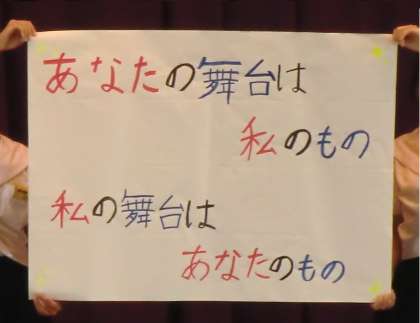 あなたの舞台は
私のもの
私の舞台は
あなたのもの